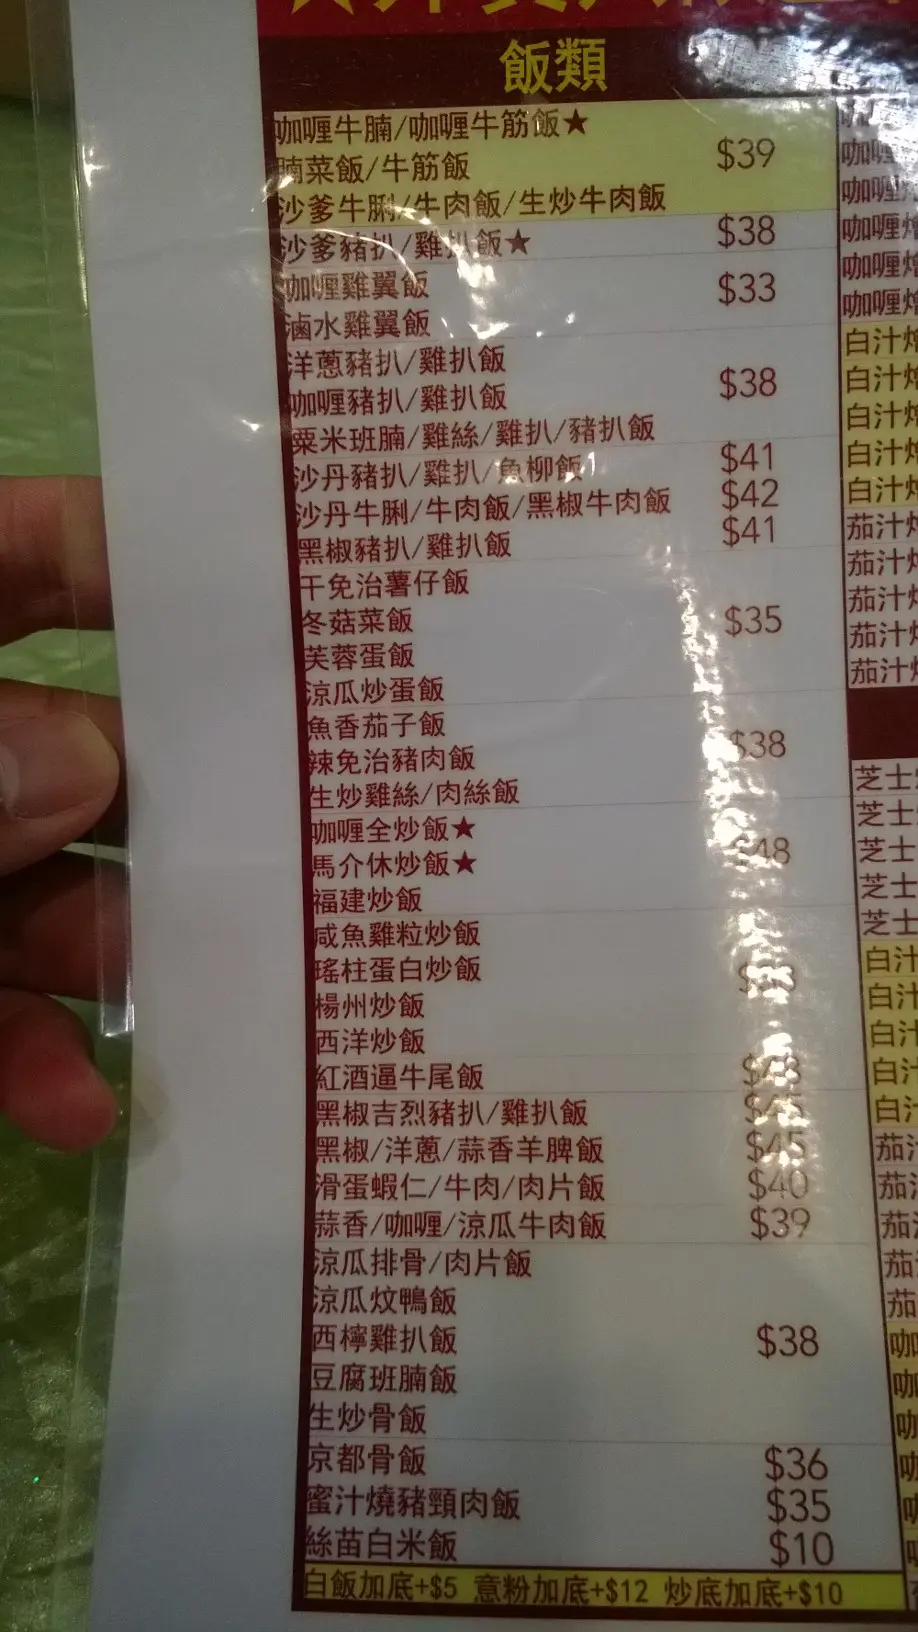 飯類
咖喱牛腩/咖喱牛筋飯★
腩菜飯/牛筋飯 $39
沙爹牛脷/牛肉飯/生炒牛肉飯
沙爹豬扒/雞扒飯★ $38
咖喱雞翼飯 $33
滷水雞翼飯
洋蔥豬扒/雞扒飯
咖喱豬扒/雞扒飯 $38
粟米班腩/雞絲/雞扒/豬扒飯
沙丹豬扒/雞扒/魚柳飯 $41
沙丹牛脷/牛肉飯/黑椒牛肉飯 $42
黑椒豬扒/雞扒飯 $41
干免治薯仔飯
冬菇菜飯 $35
芙蓉蛋飯
涼瓜炒蛋飯
魚香茄子飯
辣免治豬肉飯 $38
生炒雞絲/肉絲飯
咖喱全炒飯★
馬介休炒飯★ $48
福建炒飯
咸魚雞粒炒飯
瑤柱蛋白炒飯
楊州炒飯
西洋炒飯
紅酒逼牛尾飯
黑椒吉烈豬扒/雞扒飯
黑椒/洋蔥/蒜香羊脾飯 $45
滑蛋蝦仁/牛肉/肉片飯 $40
蒜香/咖喱/涼瓜牛肉飯 $39
涼瓜排骨/肉片飯
涼瓜炆鴨飯
西檸雞扒飯 $38
豆腐班腩飯
生炒骨飯
京都骨飯 $36
蜜汁燒豬頸肉飯 $35
絲苗白米飯 $10
白飯加底+$5 意粉加底+$12 炒底加底+$10
咖喱
咖喱
咖喱
咖喱
白汁
白汁
白汁
白汁
白汁
茄汁
茄汁
茄汁
茄汁
茄汁
芝士
芝士
芝士
芝士
芝士
白汁
白汁
白汁
白汁
白汁
茄
茄
茄
茄
茄
咖
咖
咖
咖